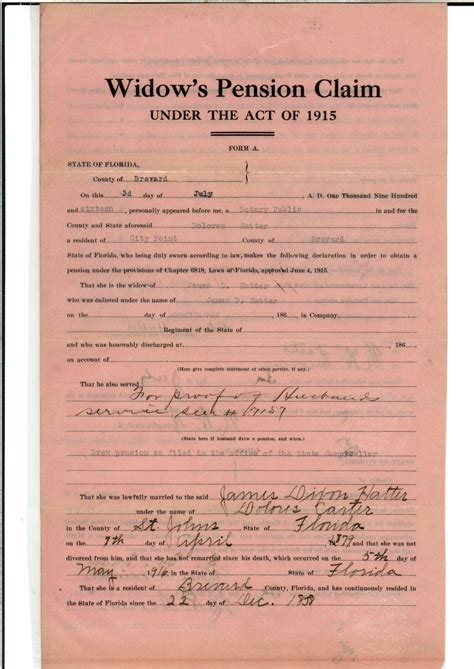 Widow's Pension Claim
UNDER THE ACT OF 1915
FORM A.
STATE OF FLORIDA,
County of Brevard
On this 3d day of July A. D. One Thousand Nine Hundred
and sixteen, personally appeared before me, a Notary Public in and for the
County and State aforesaid Dolores Hatter
a resident of City Point County of Brevard
State of Florida, who being duly sworn according to law, makes the following declaration in order to obtain a
pension under the provisions of Chapter 6818, Laws of Florida, approved June 4, 1915.
That she is the widow of James D. Hatter
who was enlisted under the name of James D. Hatter
on the day of 186 , in Company
Regiment of the State of
and who was honorably discharged at 186
on account of
(Here give complete statement of other service, if any.)
That he also served
For proof of Husband
service see # 7057
(State here if husband drew a pension, and when.)
Drew pension as filed in the office of the State Comptroller
That she was lawfully married to the said James Dixon Hatter
under the name of Dolores Carter
in the County of St Johns State of Florida
on the 9th day of April 1879, and that she was not
divorced from him, and that she has not remarried since his death, which occurred on the 5th day of
May 1916, in the State of State of Florida
That she is a resident of Brevard County, Florida, and has continuously resided in
the State of Florida since the 22 day of Dec. 1858